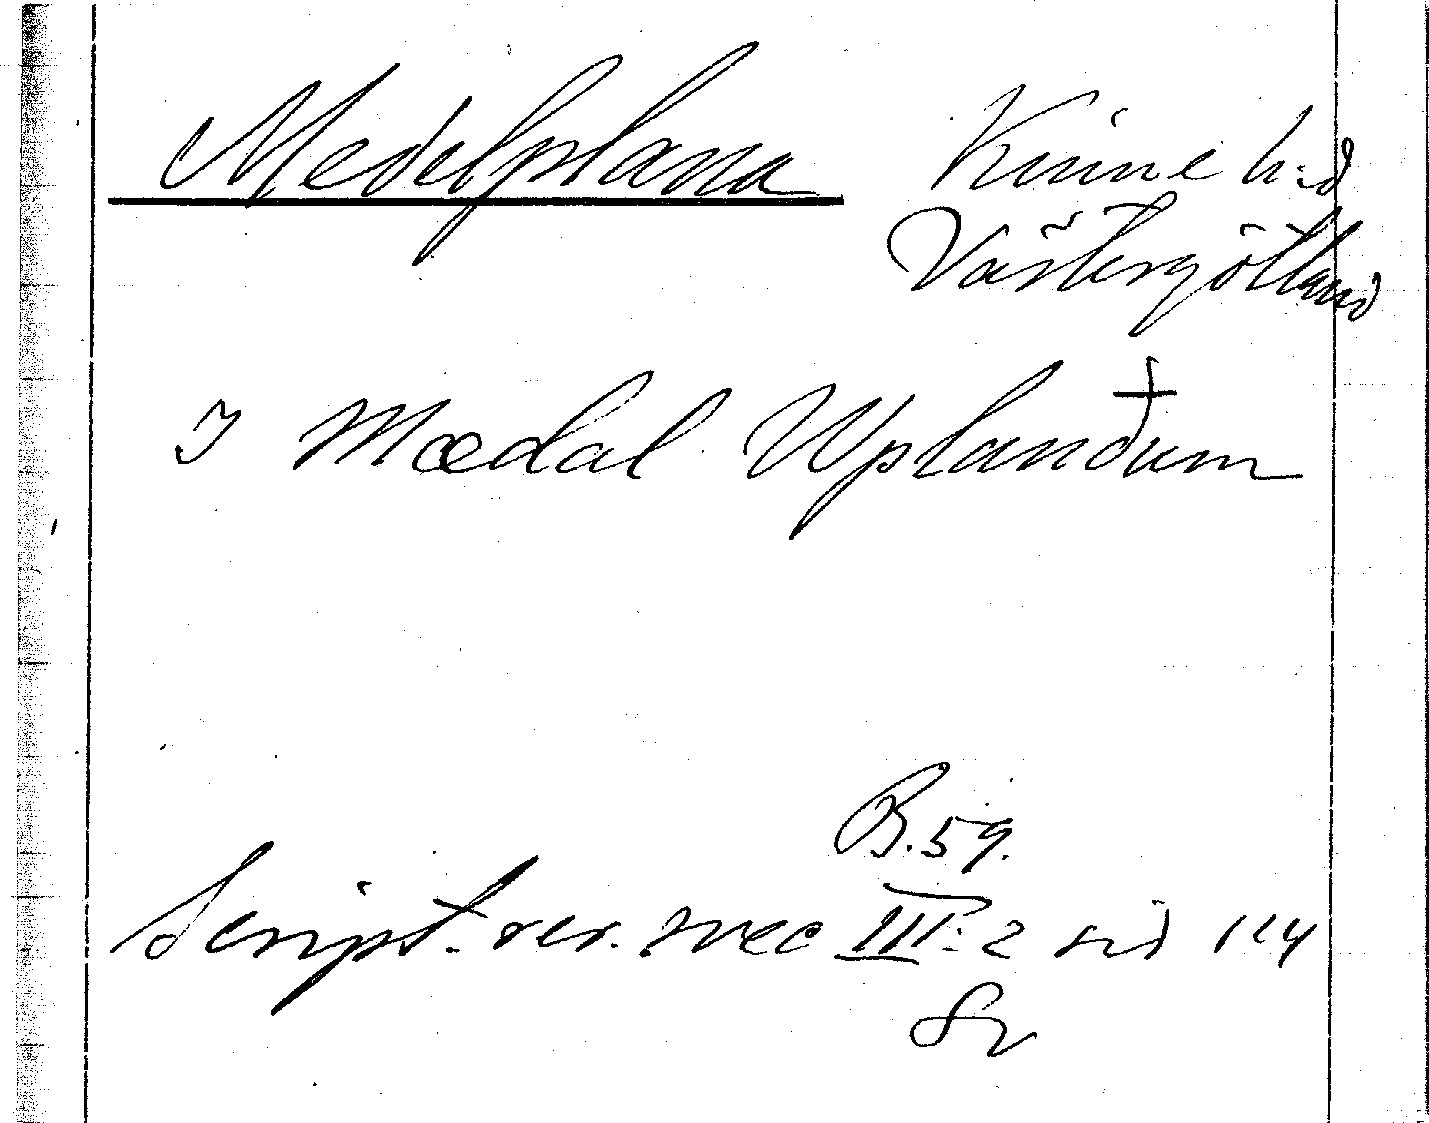 Medelplana Kinne h:d
Västergötland
I Mædal Uplandum
B.59.
Script. rer. svec III: 2 sid 114